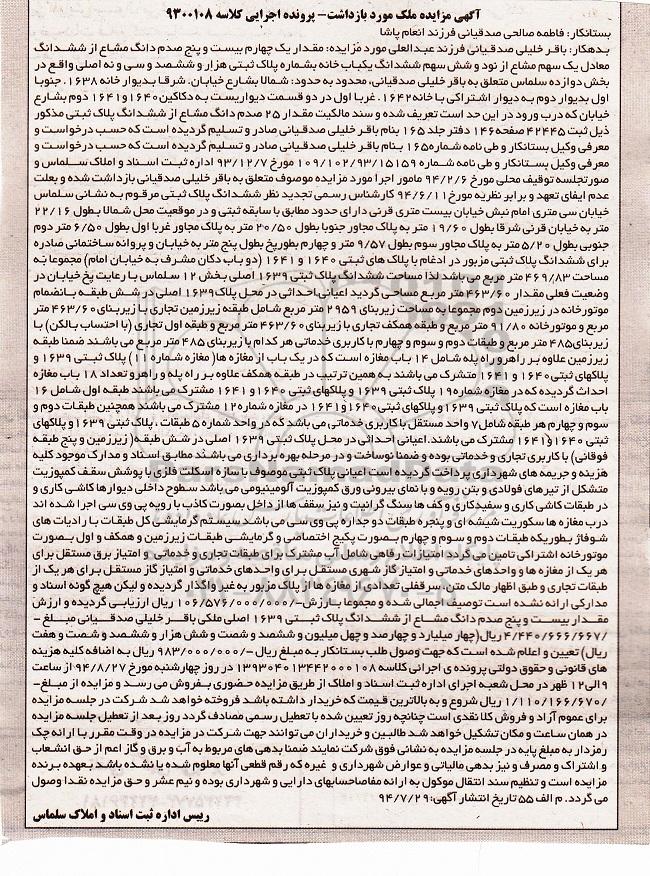 آگهی مزایده ملک مورد بازداشت- پرونده اجرایی کلاسه ۹۳۰۰۱۰۸
بستانکار: فاطمه صالحی صدقیانی فرزند انعام پاشا
بدهکار: باقر خلیلی صدقیانی فرزند عبدالعلی مورد مزایده: مقدار یک چهارم بیست و پنج صدم دانگ مشاع از ششدانگ
معادل یک سهم مشاع از نود و شش سهم ششدانگ یکباب خانه بشماره پلاک ثبتی هزار و ششصد و سی و نه اصلی واقع در
بخش دوازده سلماس متعلق به باقر خلیلی صدقیانی، محدود به حدود: شمالا بشارع خیابان. شرقا بدیوار خانه ۱۶۳۸. جنوبا
اول بدیوار دوم به دیوار اشتراکی با خانه ۱۶۴۲. غربا اول در دو قسمت دیواریست به دکاکین ۱۶۴۰ و ۱۶۴۱ دوم بشارع
خیابان که درب ورود در این حد است تعریف شده و سند مالکیت مقدار ۲۵ صدم دانگ مشاع از ششدانگ پلاک ثبتی مذکور
ذیل ثبت ۴۲۴۴۵ صفحه ۱۴۶ دفتر جلد ۱۶۵ بنام باقر خلیلی صدقیانی صادر و تسلیم گردیده است که حسب درخواست و
معرفی وکیل بستانکار و طی نامه شماره ۱۶۵ بنام باقر خلیلی صدقیانی صادر و تسلیم گردیده است که حسب درخواست و
معرفی وکیل بستانکار و طی نامه شماره ۱۰۹/۱۰۲/۹۳/۱۵۱۵۹ مورخ ۹۳/۱۲/۷ اداره ثبت اسناد و املاک سلماس و
صورتجلسه توقیف محلی مورخ ۹۴/۲/۶ مامور اجرا مورد مزایده موصوف متعلق به باقر خلیلی صدقیانی بازداشت شده و بعلت
عدم ایفای تعهد و برابر نظریه مورخ ۹۴/۶/۱۱ کارشناس رسمی تجدید نظر ششدانگ پلاک ثبتی مرقوم به نشانی سلماس
خیابان سی متری امام نبش خیابان بیست متری قرنی دارای حدود مطابق با سابقه ثبتی و در موقعیت محل شمالا بطول ۲۲/۱۶
متر به خیابان قرنی شرقا بطول ۱۹/۶۰ متر به پلاک مجاور جنوبا بطول ۲۰/۵۰ متر به پلاک مجاور غربا اول بطول ۶/۵۰ متر دوم
جنوبی بطول ۵/۲۰ متر به پلاک مجاور سوم بطول ۹/۵۷ متر و چهارم بطور پخ بطول پنج متر به خیابان و پروانه ساختمانی صادره
برای ششدانگ پلاک ثبتی مزبور در ادغام با پلاک های ثبتی ۱۶۴۰ و ۱۶۴۱ (دو باب دکان مشرف به خیابان امام) مجموعا به
مساحت ۴۶۹/۸۳ متر مربع می باشد لذا مساحت ششدانگ پلاک ثبتی ۱۶۳۹ اصلی بخش ۱۲ سلماس با رعایت پخ خیابان در
وضعیت فعلی مقدار ۴۶۳/۶۰ متر مربع مساحی گردید اعیانی احداثی در محل پلاک ۱۶۳۹ اصلی در شش طبقه بانضمام
موتورخانه در زیرزمین دوم مجموعا به مساحت زیربنای ۲۹۵۹ متر مربع شامل طبقه زیرزمین تجاری با زیربنای ۴۶۳/۶۰ متر
مربع و موتورخانه ۹۱/۸۰ متر مربع و طبقه همکف تجاری با زیربنای ۴۶۳/۶۰ متر مربع و طبقه اول تجاری (با احتساب بالکن) با
زیربنای ۴۸۵ متر مربع و طبقات دوم و سوم و چهارم با کاربری خدماتی هر کدام با زیربنای ۴۸۵ متر مربع می باشند ضمنا طبقه
زیرزمین علاوه بر راهرو و راه پله شامل ۱۴ باب مغازه است که در یک باب از مغازه ها (مغازه شماره ۱۱) پلاک ثبتی ۱۶۳۹ و
پلاکهای ثبتی ۱۶۴۰ و ۱۶۴۱ مشترک می باشند به همین ترتیب در طبقه همکف علاوه بر راه پله و راهرو تعداد ۱۸ باب مغازه
احداث گردیده که در مغازه شماره ۱۹ پلاک ثبتی ۱۶۳۹ و پلاکهای ثبتی ۱۶۴۰ و ۱۶۴۱ مشترک می باشند طبقه اول شامل ۱۶
باب مغازه است که پلاک ثبتی ۱۶۳۹ و پلاکهای ثبتی ۱۶۴۰ و ۱۶۴۱ در مغازه شماره ۱۲ مشترک می باشند همچنین طبقات دوم و
سوم و چهارم هر طبقه شامل ۷ واحد مستقل با کاربری خدماتی می باشد که در واحد شماره ۵ طبقات، پلاک ثبتی ۱۶۳۹ و پلاکهای
ثبتی ۱۶۴۰ و ۱۶۴۱ مشترک می باشند. اعیانی احداثی در محل پلاک ثبتی ۱۶۳۹ اصلی در شش طبقه (زیرزمین و پنج طبقه
فوقانی) با کاربری تجاری و خدماتی بوده و ضمنا نوساخت و در مرحله بهره برداری می باشند مطابق اسناد و مدارک موجود کلیه
هزینه و جریمه های شهرداری پرداخت گردیده است اعیانی پلاک ثبتی موصوف با سازه اسکلت فلزی با پوشش سقف کمپوزیت
متشکل از تیرهای فولادی و بتن رویه و با نمای بیرونی ورق کمپوزیت آلومینیومی می باشد سطوح داخلی دیوارها کاشی کاری و
در طبقات کاشی کاری و سفیدکاری و کف ها سنگ گرانیت و نیز سقف ها از داخل بصورت کاذب با رویه پی وی سی اجرا شده اند
درب مغازه ها سکوریت شیشه ای و پنجره طبقات دو جداره پی وی سی می باشد سیستم گرمایش کل طبقات با رادیات های
شوفاژ بطوریکه طبقات دوم و سوم و چهارم بصورت پکیج اختصاصی و گرمایشی طبقات زیرزمین و همکف و اول بصورت
موتورخانه اشتراکی تامین می گردد امتیازات رفاهی شامل آب مشترک برای طبقات تجاری و خدماتی و امتیاز برق مستقل برای
هر یک از مغازه ها و واحدهای خدماتی و امتیاز گاز شهری مستقل برای واحدهای خدماتی و امتیاز گاز مستقل برای هر یک از
طبقات تجاری و طبق اظهار مالک متن سرقفلی تعدادی از مغازه ها از پلاک مزبور به غیر واگذار گردیده و لیکن هیچ گونه اسناد و
مدارکی ارائه نشده است توصیف اجمالی شده و مجموعا بارزش -/۱۰۶/۵۷۶/۰۰۰/۰۰۰ ریال ارزیابی گردیده و ارزش
مقدار بیست و پنج صدم دانگ مشاع از ششدانگ پلاک ثبتی ۱۶۳۹ اصلی ملکی باقر خلیلی صدقیانی مبلغ -
/۴/۴۴۰/۶۶۶/۶۶۷ ریال (چهار میلیارد و چهارصد و چهل میلیون و ششصد و شصت و شش هزار و ششصد و شصت و هفت
ریال) تعیین و اعلام شده است که جهت وصول طلب بستانکار به مبلغ ریال -/۹۸۳/۰۰۰/۰۰۰ ریال به اضافه کلیه هزینه
های قانونی و حقوق دولتی پرونده ی اجرائی کلاسه ۱۳۹۳۰۴۰۱۳۴۴۲۰۰۰۱۰۸ در روز چهارشنبه مورخ ۹۴/۸/۲۷ از ساعت
۹ الی ۱۲ ظهر در محل شعبه اجرای اداره ثبت اسناد و املاک از طریق مزایده حضوری بفروش می رسد و مزایده از مبلغ -
/۱/۱۱۰/۱۶۶/۶۷۰ ریال شروع و به بالاترین قیمت که خریدار داشته باشد فروخته خواهد شد شرکت در جلسه مزایده
برای عموم آزاد و فروش کلا نقدی است چنانچه روز تعیین شده با تعطیل رسمی مصادف گردد روز بعد از تعطیل جلسه مزایده
در همان ساعت و مکان تشکیل خواهد شد طالبین و خریداران می توانند جهت شرکت در مزایده در وقت مقرر با ارائه چک
رمزدار به مبلغ پایه در جلسه مزایده به نشانی فوق شرکت نمایند ضمنا بدهی های مربوط به آب و برق و گاز اعم از حق انشعاب
و اشتراک و مصرف و نیز بدهی مالیاتی و عوارض شهرداری و غیره که رقم قطعی آنها معلوم شده یا نشده باشد بعهده برنده
مزایده است و تنظیم سند انتقال موکول به ارائه مفاصاحسابهای دارایی و شهرداری بوده و نیم عشر و حق مزایده نقدا وصول
می گردد. م الف ۵۵ تاریخ انتشار آگهی: ۹۴/۷/۲۹
رییس اداره ثبت اسناد و املاک سلماس